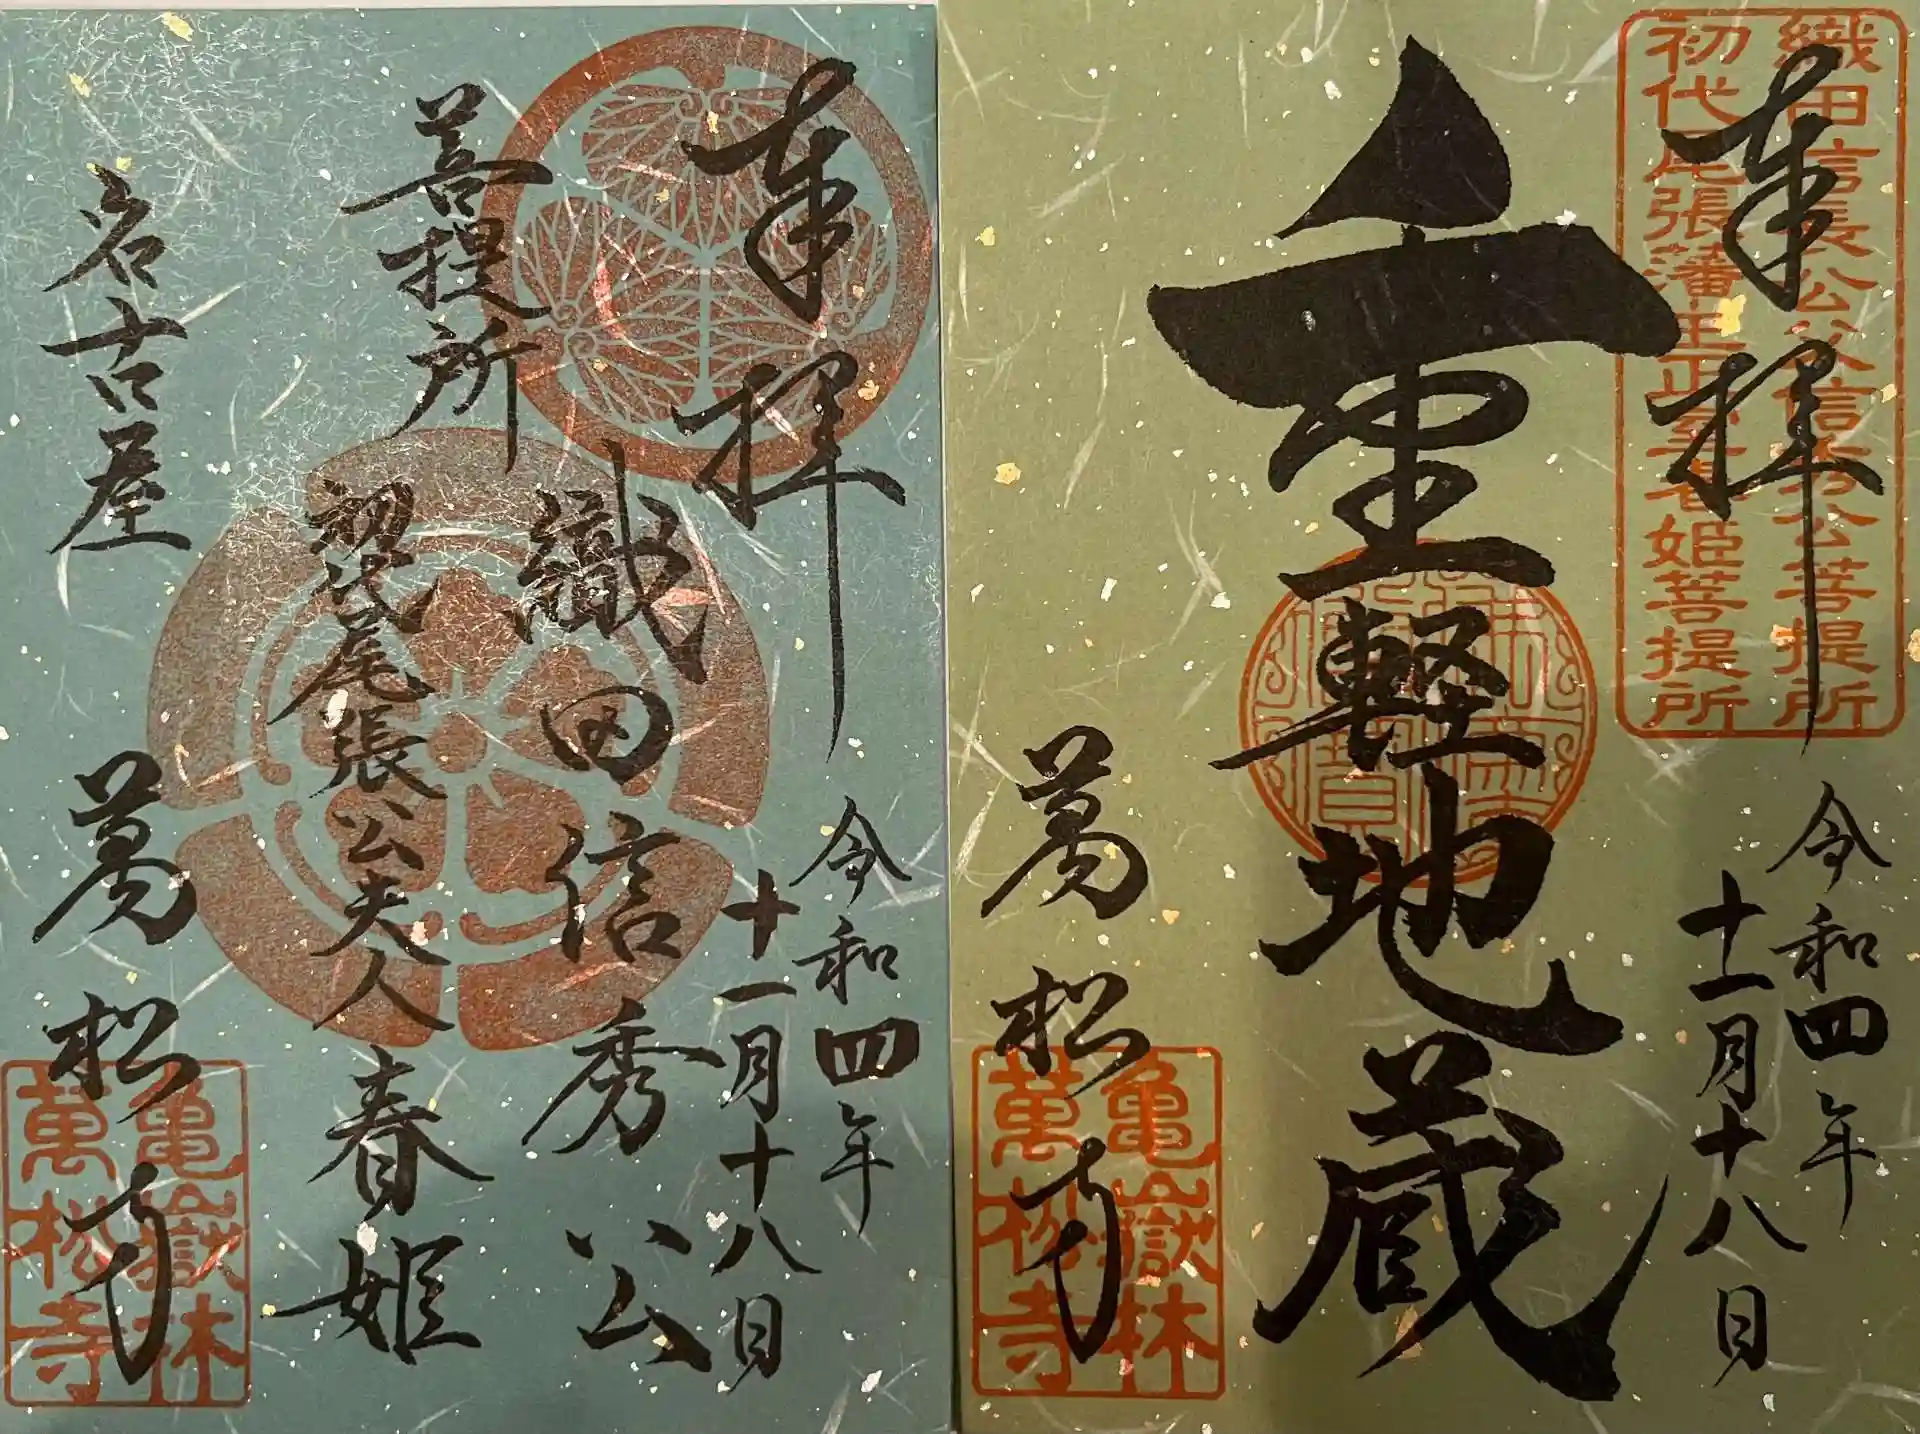 織田信長公父信秀公菩提所
初代尾張藩主正室春姫菩提所
奉拝
令和四年
十一月十八日
重軽地蔵
萬松寺
亀嶽林
萬松寺
奉拝
令和四年
十一月十八日
菩提所
織田信秀公
初代尾張公夫人春姫
名古屋
萬松寺
亀嶽林
萬松寺